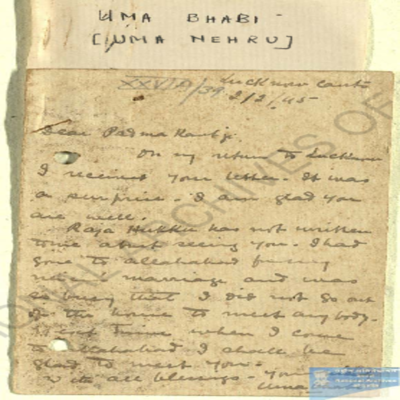 UMA BHABI
[UMA NEHRU]
Lucknow Cantt
2/2/45
Dear Padma Kantji
On my return to Lucknow
I received your letter. It was
a surprise. I am glad you
are well.
Raja Hukku has not written
to me about seeing you. I had
gone to allahabad for my
marriage and was
so busy that I did not go out
of the house to meet anybody.
time when I come
to allahabad I shall be
glad to meet you.
With all blessings. Your
Uma